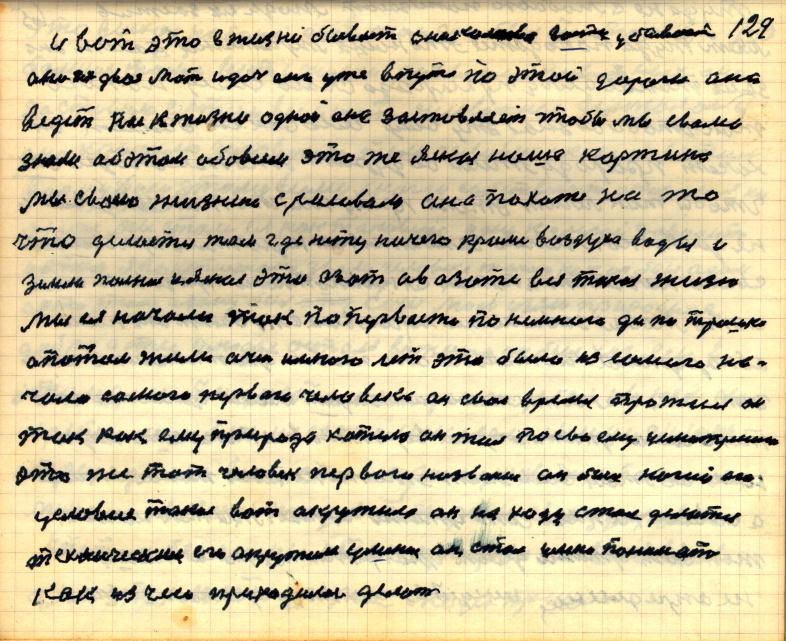 129
и вот это в жизни бывает
они двоя мат и доч ани уже впути по этой дороги ана
ведёт к жизни одной ана заставляет чтобы мы свами
знали абэтом абовсем это же яная наша картина
мы свою жизнию срисовали ана похоже на то
что делается там где нету ничего кроме воздуха воды и
земли это азот ав азоте вся такая жизню
мы ея начали так попервости по немного да по трошко
апотом жили ачи много лет это было из самого на-
чала самого первого человека он свое время прожил он
так как ему природа хотела он жил по своему
это же тот человек первого названия он был нагий его
условия такие вот окружило он на ходу стал делатся
технически его окружили он стал умно понимать
как из чего приходилос делат